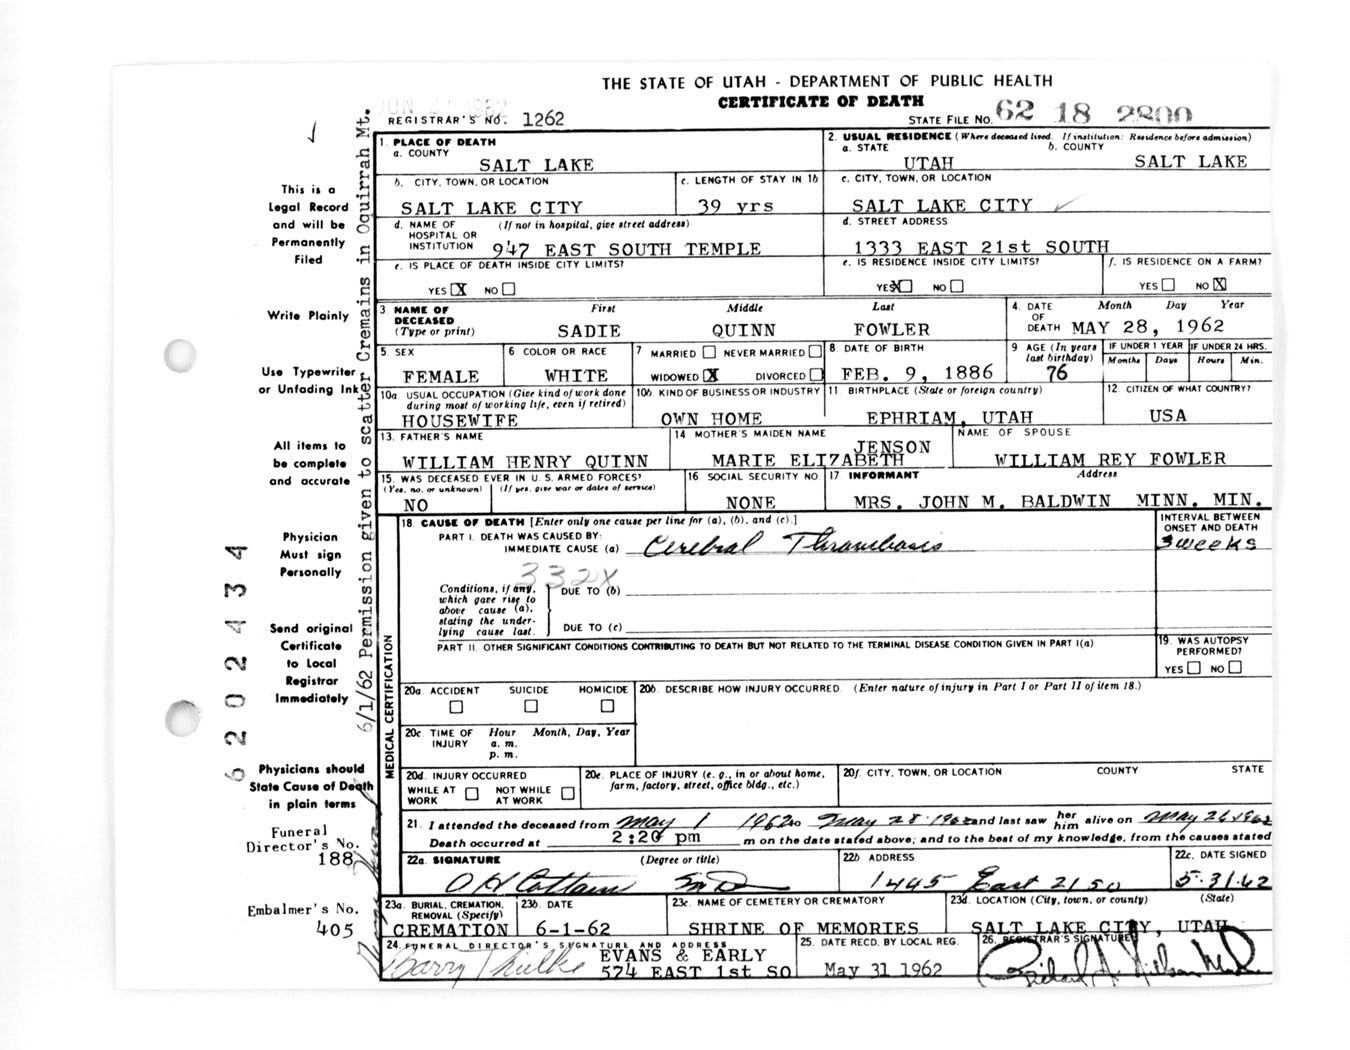 THE STATE OF UTAH - DEPARTMENT OF PUBLIC HEALTH
CERTIFICATE OF DEATH
JUN 1962
REGISTRAR'S NO. 1262
STATE FILE NO. 62 18 2800
1. PLACE OF DEATH
a. COUNTY
SALT LAKE
2. USUAL RESIDENCE (Where deceased lived. If institution: Residence before admission)
a. STATE
UTAH
b. COUNTY
SALT LAKE
b. CITY, TOWN, OR LOCATION
SALT LAKE CITY
c. LENGTH OF STAY IN 1b
39 yrs
c. CITY, TOWN, OR LOCATION
SALT LAKE CITY
d. NAME OF HOSPITAL OR INSTITUTION
(If not in hospital, give street address)
947 EAST SOUTH TEMPLE
d. STREET ADDRESS
1333 EAST 21st SOUTH
e. IS PLACE OF DEATH INSIDE CITY LIMITS?
YES X NO
e. IS RESIDENCE INSIDE CITY LIMITS?
YES X NO
f. IS RESIDENCE ON A FARM?
YES NO X
3. NAME OF DECEASED (Type or print)
First Middle Last
SADIE QUINN FOWLER
4. DATE OF DEATH
Month Day Year
MAY 28, 1962
5. SEX
FEMALE
6 COLOR OR RACE
WHITE
7 MARRIED NEVER MARRIED
WIDOWED X DIVORCED
8. DATE OF BIRTH
FEB. 9, 1886
9 AGE (In years last birthday)
76
IF UNDER 1 YEAR
Months Days
IF UNDER 24 HRS.
Hours Min.
10a. USUAL OCCUPATION (Give kind of work done during most of working life, even if retired)
HOUSEWIFE
10b. KIND OF BUSINESS OR INDUSTRY
OWN HOME
11 BIRTHPLACE (State or foreign country)
EPHRIAM, UTAH
12. CITIZEN OF WHAT COUNTRY?
USA
13. FATHER'S NAME
WILLIAM HENRY QUINN
14 MOTHER'S MAIDEN NAME
JENSON
MARIE ELIZABETH
NAME OF SPOUSE
WILLIAM REY FOWLER
15. WAS DECEASED EVER IN U. S. ARMED FORCES?
(Yes, no, or unknown) (If yes, give war or dates of service)
NO
16. SOCIAL SECURITY NO.
NONE
17 INFORMANT Address
MRS. JOHN M. BALDWIN MINN. MIN.
18. CAUSE OF DEATH [Enter only one cause per line for (a), (b), and (c).]
PART I. DEATH WAS CAUSED BY:
IMMEDIATE CAUSE (a) Cerebral Thrombosis
INTERVAL BETWEEN ONSET AND DEATH
3 weeks
332X
Conditions, if any, which gave rise to above cause (a), stating the underlying cause last.
DUE TO (b)
DUE TO (c)
PART II. OTHER SIGNIFICANT CONDITIONS CONTRIBUTING TO DEATH BUT NOT RELATED TO THE TERMINAL DISEASE CONDITION GIVEN IN PART I(a)
19. WAS AUTOPSY PERFORMED?
YES NO
MEDICAL CERTIFICATION
20a. ACCIDENT SUICIDE HOMICIDE
20b. DESCRIBE HOW INJURY OCCURRED. (Enter nature of injury in Part I or Part II of item 18.)
20c. TIME OF INJURY
Hour Month, Day, Year
a. m.
p. m.
20d. INJURY OCCURRED
WHILE AT WORK NOT WHILE AT WORK
20e. PLACE OF INJURY (e. g., in or about home, farm, factory, street, office bldg., etc.)
20f. CITY, TOWN, OR LOCATION COUNTY STATE
21. I attended the deceased from May 1 1962 to May 28 1962 and last saw her him alive on May 26 1962
Death occurred at 2:20 pm m on the date stated above; and to the best of my knowledge, from the causes stated
22a. SIGNATURE (Degree or title)
22b ADDRESS
1445 East 21 So
22c. DATE SIGNED
5-31-62
23a. BURIAL, CREMATION, REMOVAL (Specify)
CREMATION
23b. DATE
6-1-62
23c. NAME OF CEMETERY OR CREMATORY
SHRINE OF MEMORIES
23d. LOCATION (City, town, or county) (State)
SALT LAKE CITY, UTAH
24. FUNERAL DIRECTOR'S SIGNATURE AND ADDRESS
Barry
EVANS & EARLY
574 EAST 1st SO
25. DATE RECD. BY LOCAL REG.
May 31 1962
26. REGISTRAR'S SIGNATURE
This is a
Legal Record
and will be
Permanently
Filed
Write Plainly
Use Typewriter
or Unfading Ink
All items to
be complete
and accurate
Physician
Must sign
Personally
Send original
Certificate
to Local
Registrar
Immediately
Physicians should
State Cause of Death
in plain terms
Funeral
Director's No.
188
Embalmer's No.
405
6202434
6/1/62 Permission given to scatter Cremains in Oquirrah Mt.